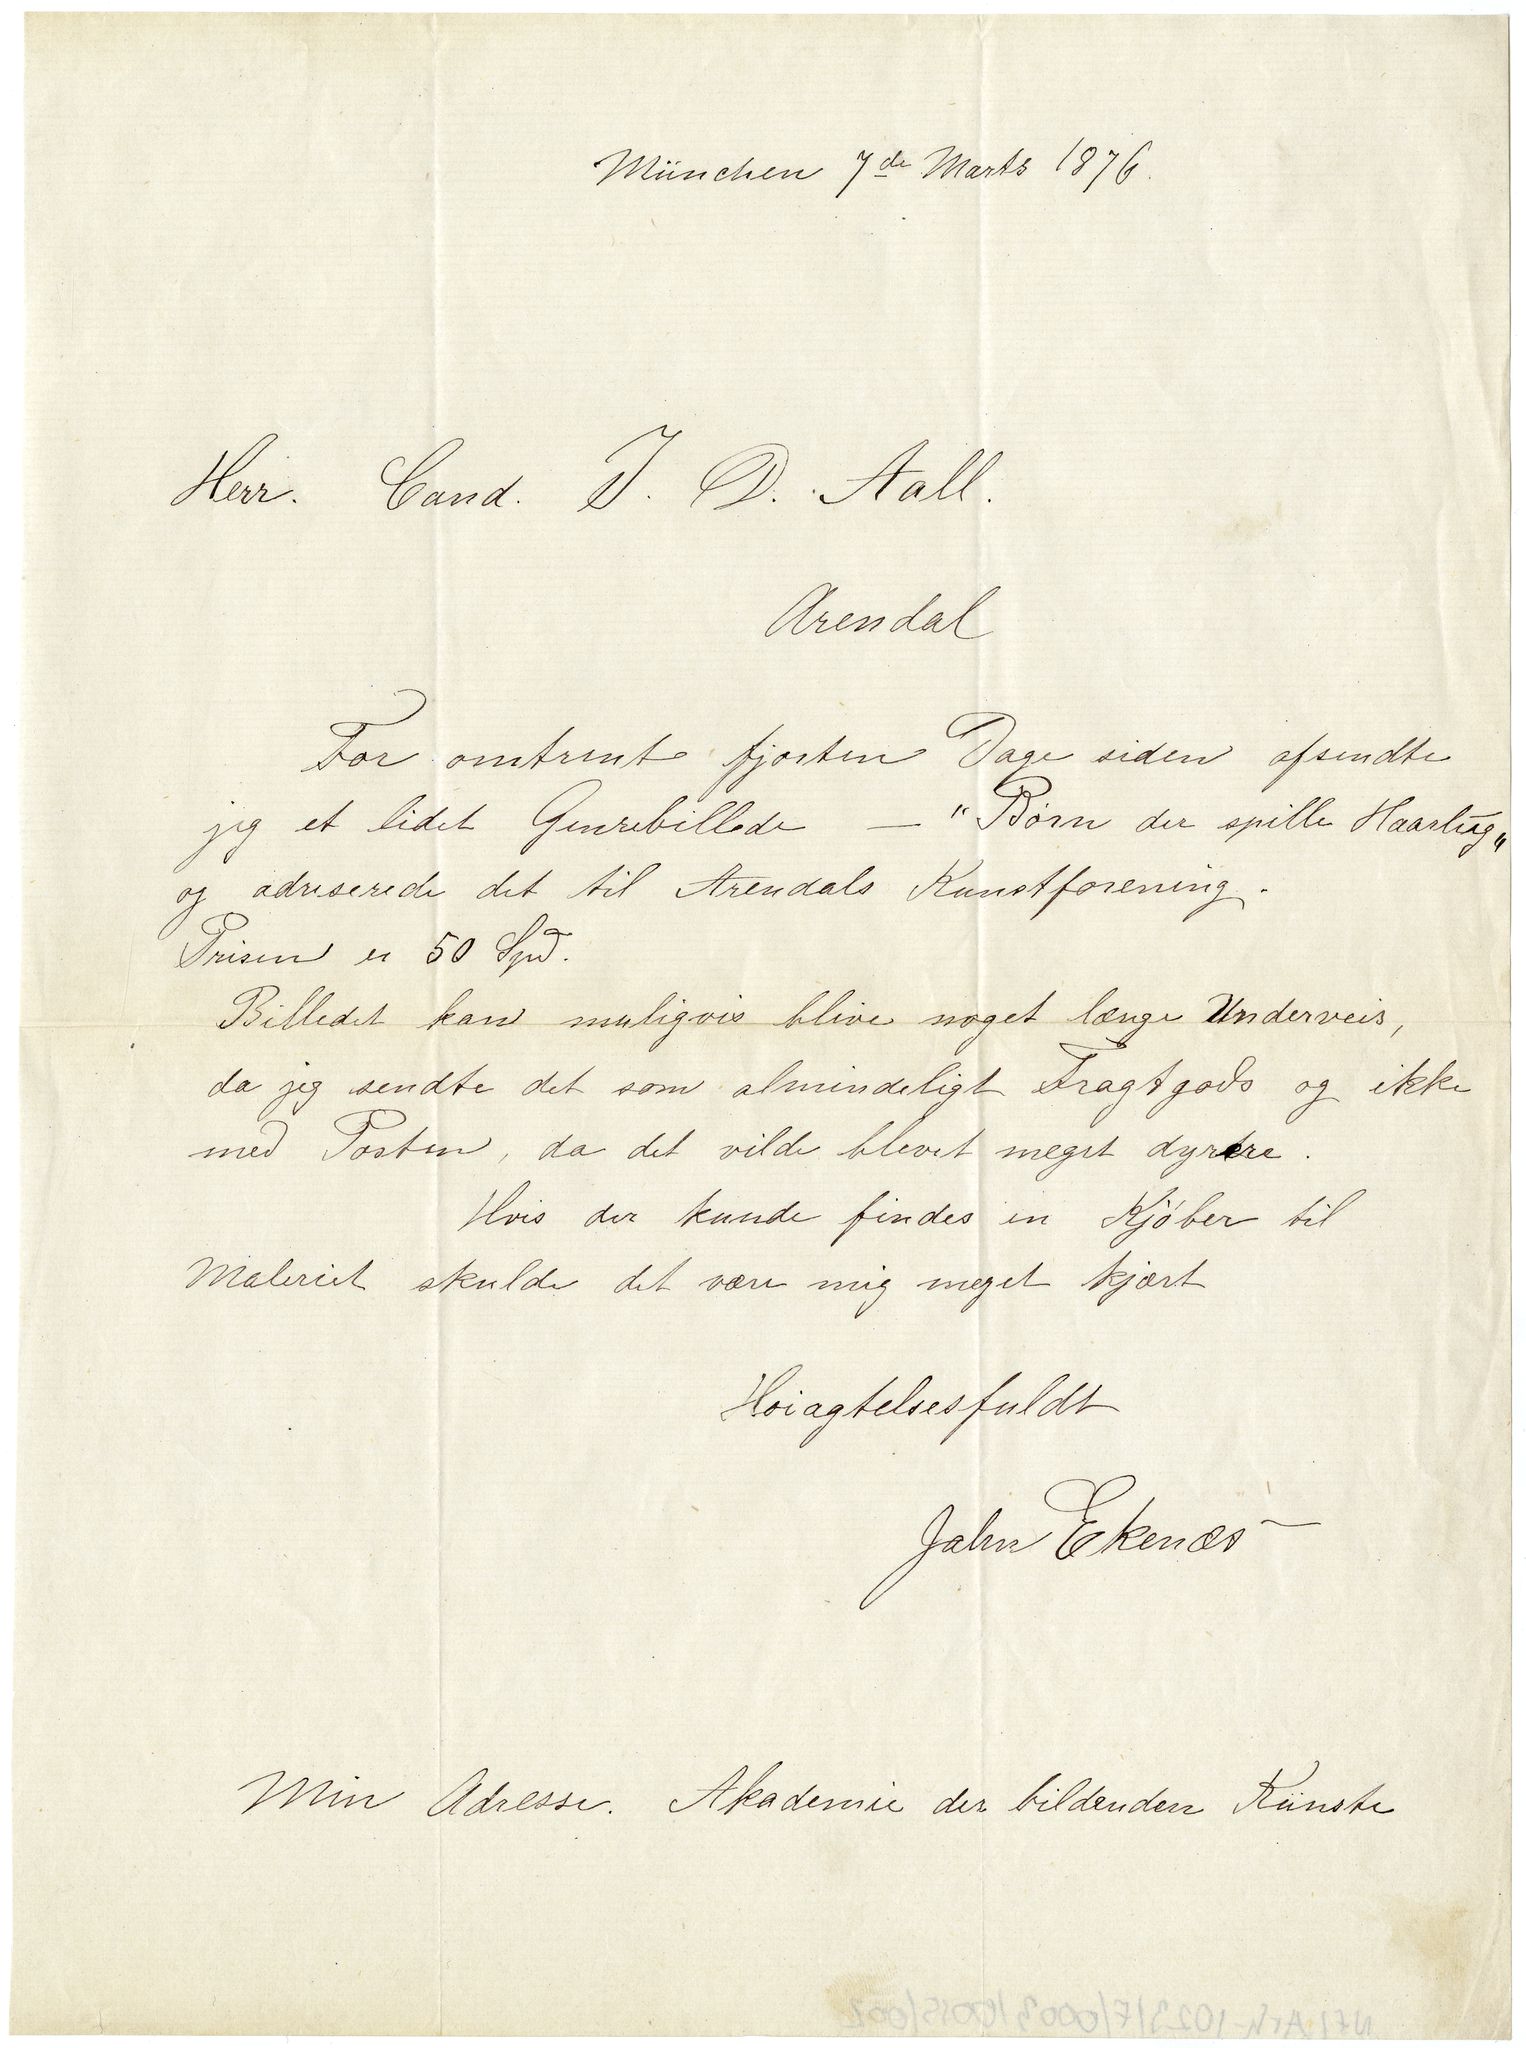 München 7de Marts 1876.
Herr. Cand. J. D. Aall.
Arendal
For omtrent fjorten Dage siden afsendte
jeg et lidet Genrebillede — "Børn der spille Haartug"
og adreserede det til Arendals Kunstforening.
Prisen er 50 Spd.
Billedet kan muligvis blive noget længe Underveis,
da jeg sendte det som almindeligt Fragtgods og ikke
med Posten, da det vilde blevet meget dyrere.
Hvis der kunde findes en Kjøber til
Maleriet skulde det være mig meget kjært
Høiagtelsesfuldt
Jahn Ekenæs
Min Adresse. Akademie der bildenden Künste